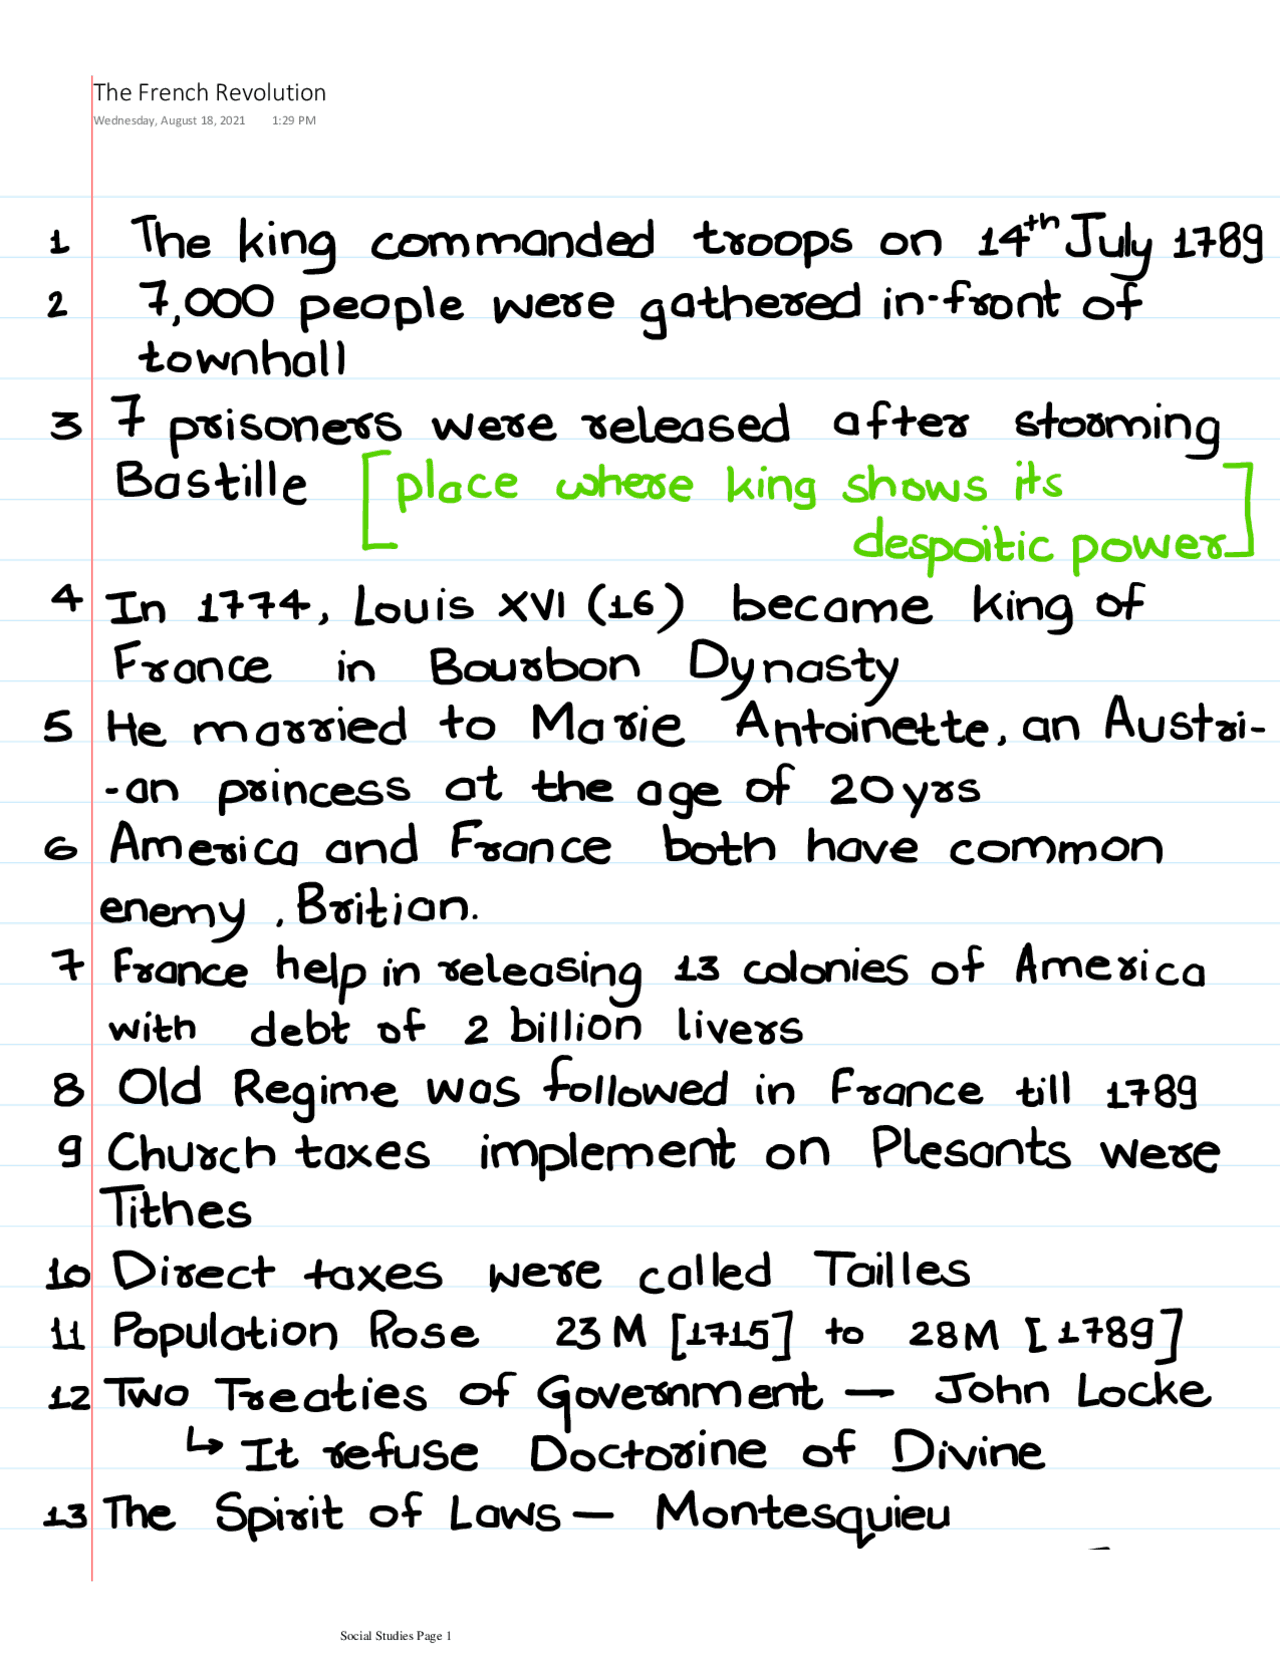 The French Revolution
Wednesday, August 18, 2021 1:29 PM
1 The king commanded troops on 14th July 1789
2 7,000 people were gathered in-front of
townhall
3 7 prisoners were released after storming
Bastille [place where king shows its
despoitic power]
4 In 1774, Louis XVI (16) became king of
France in Bourbon Dynasty
5 He married to Marie Antoinette, an Austri-
-an princess at the age of 20yrs
6 America and France both have common
enemy, Britian.
7 France help in releasing 13 colonies of America
with debt of 2 billion livers
8 Old Regime was followed in France till 1789
9 Church taxes implement on Plesants were
Tithes
10 Direct taxes were called Tailles
11 Population Rose 23M [1715] to 28M [1789]
12 Two Treaties of Government — John Locke
↳ It refuse Doctorine of Divine
13 The Spirit of Laws — Montesquieu
Social Studies Page 1